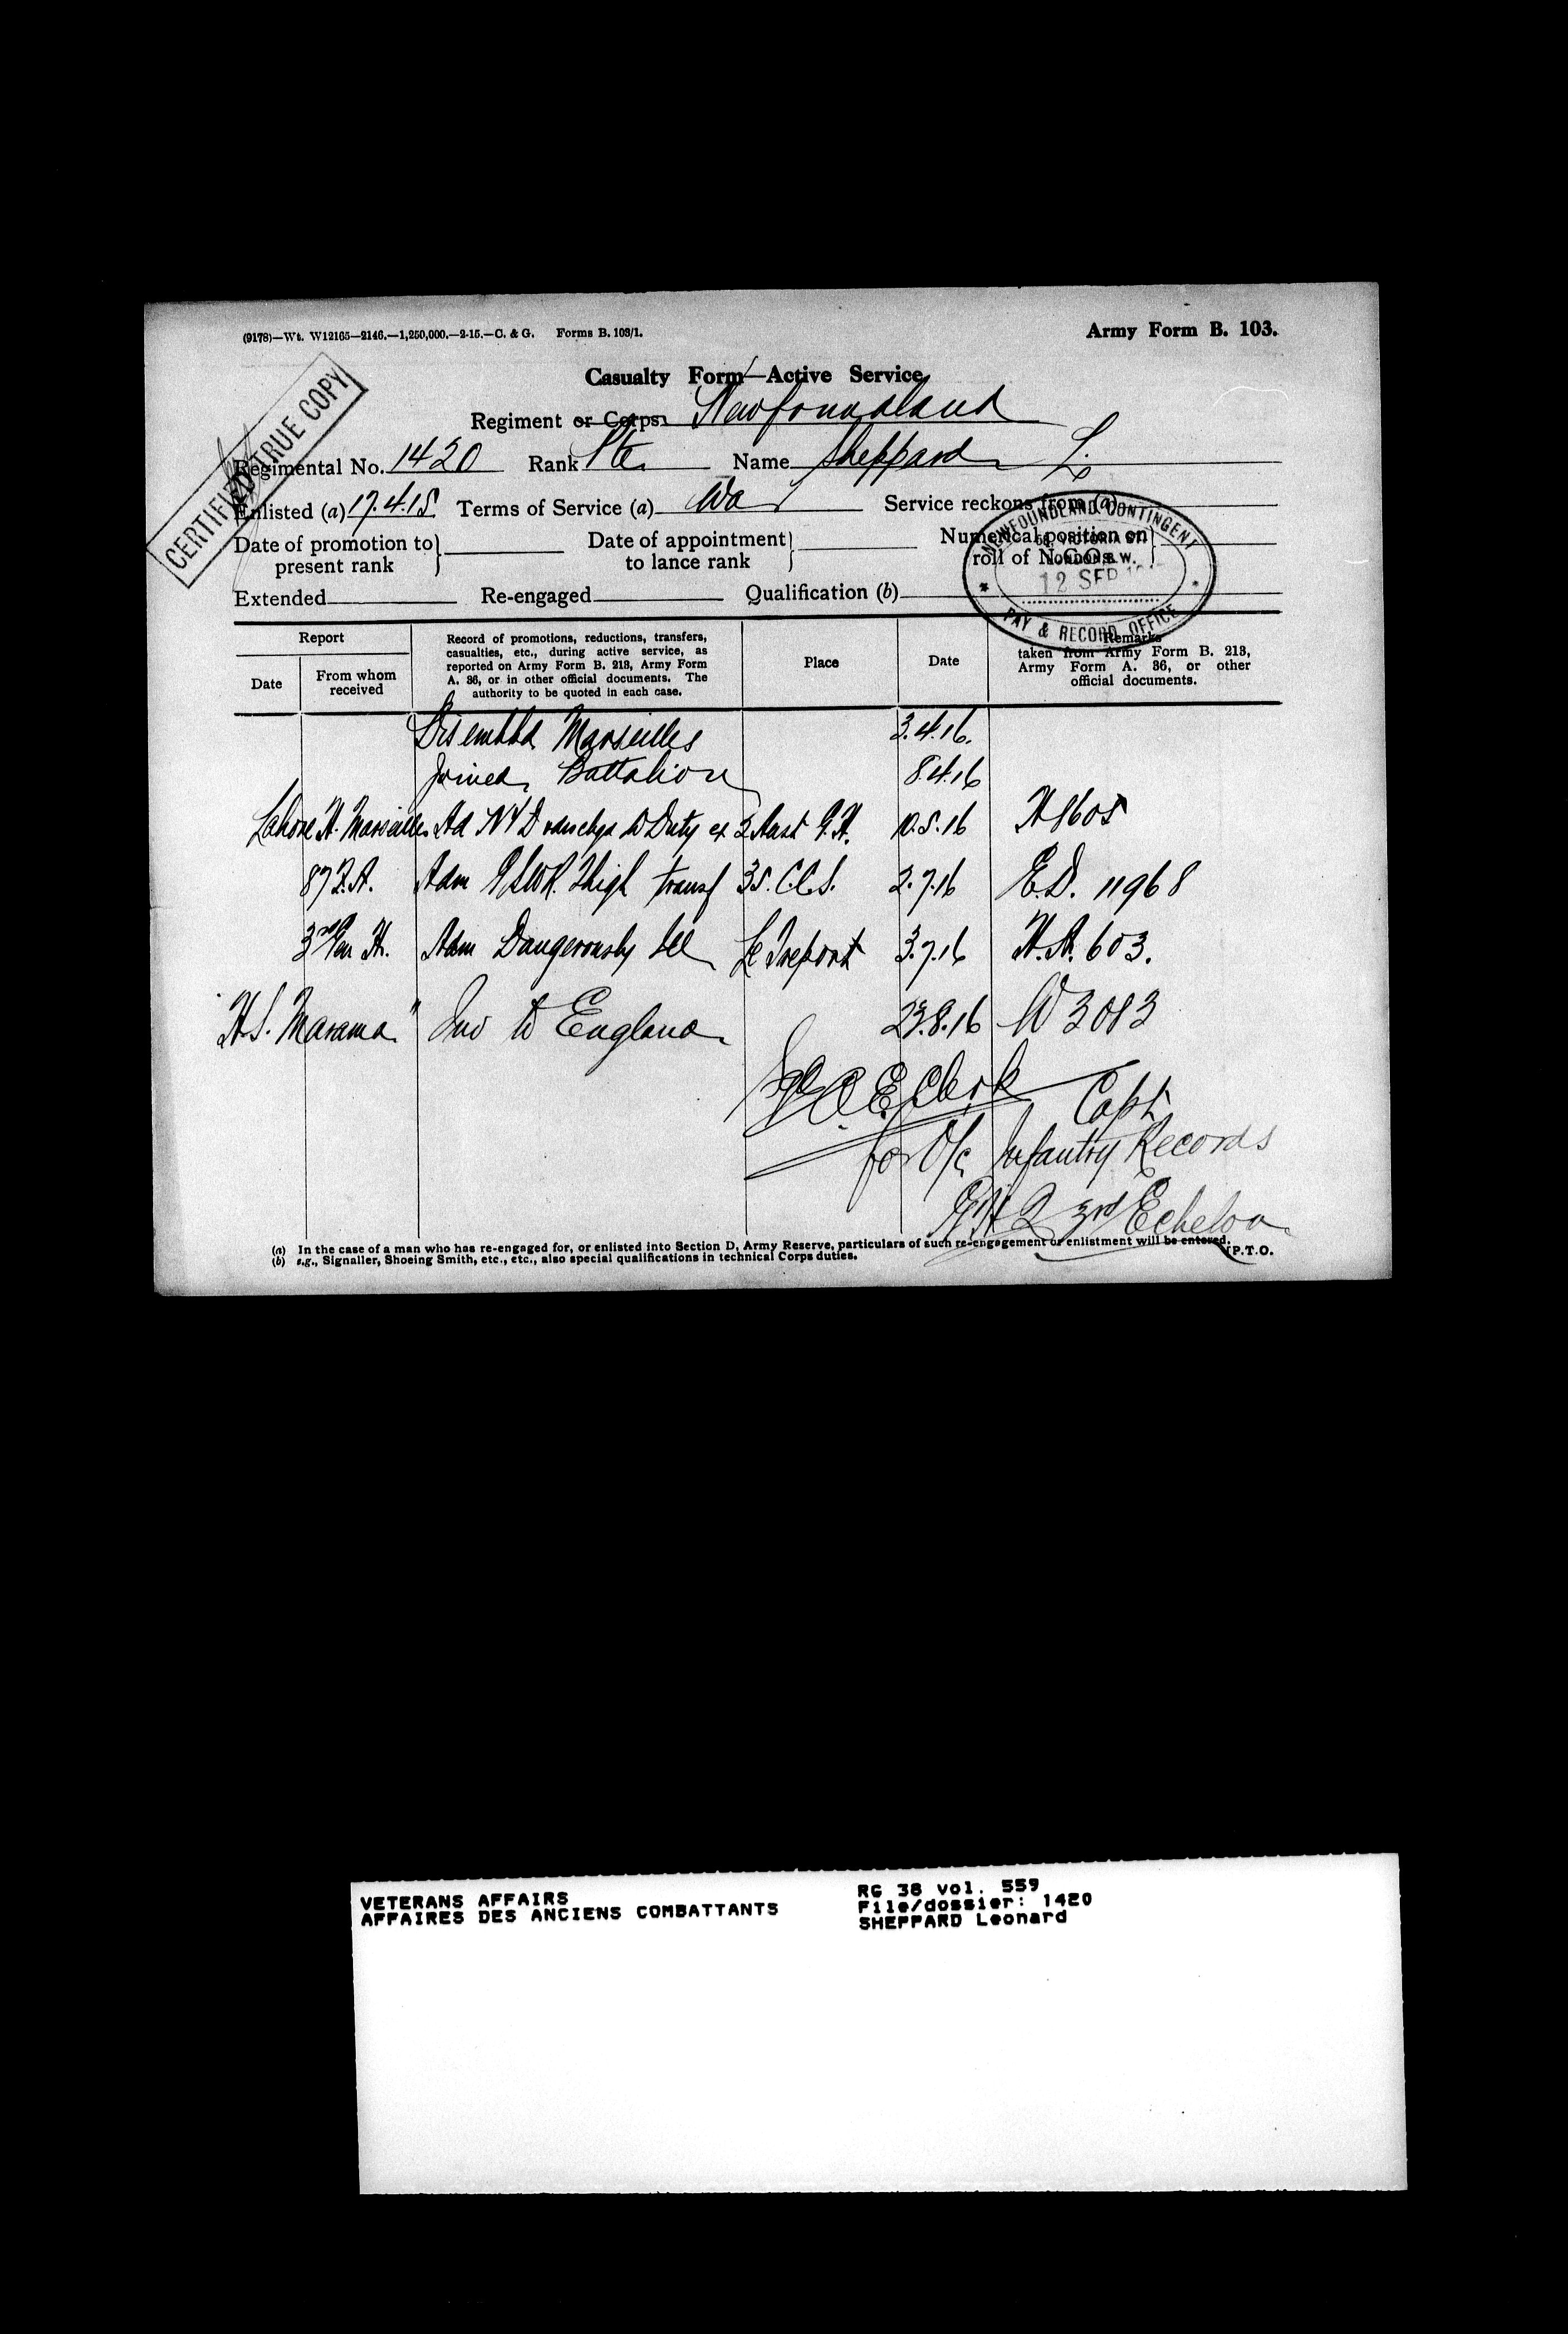 (9178)—Wt. W12165—2146.—1,250,000.—2-15.—C. & G. Forms B. 103/1.
Army Form B. 103.
CERTIFIED TRUE COPY
Casualty Form—Active Service.
Regiment or Corps Newfoundland
Regimental No. 1420 Rank Pte. Name Sheppard L.
Enlisted (a) 17.4.15 Terms of Service (a) War Service reckons from (a)
Date of promotion to present rank Date of appointment to lance rank Numerical position on roll of N.C.Os.
Extended Re-engaged Qualification (b)
NEWFOUNDLAND CONTINGENT
58, VICTORIA ST.
LONDON, S.W.
12 SEP
PAY & RECORD OFFICE
Report
Date
From whom received
Record of promotions, reductions, transfers,
casualties, etc., during active service, as
reported on Army Form B. 213, Army Form
A. 36, or in other official documents. The
authority to be quoted in each case.
Place
Date
Remarks
taken from Army Form B. 213,
Army Form A. 36, or other
official documents.
Disembkd Marseilles 3.4.16.
Joined Battalion 8.4.16
Lahore H. Marseilles Ad NYD to Duty ex 2 Aust G.H. 10.5.16 H 8605
87 F.A. Adm GSWR. Thigh transf 35. C.C.S. 2.7.16 E.D. 11968
3rd Gen H. Adm Dangerously Ill Le Treport 3.7.16 H.A. 603.
"H.S. Marama" Inv to England 23.8.16 W 3083
Capt
for O/c Infantry Records
GHQ 3rd Echelon
(a) In the case of a man who has re-engaged for, or enlisted into Section D, Army Reserve, particulars of such re-engagement or enlistment will be entered.
(b) e.g., Signaller, Shoeing Smith, etc., etc., also special qualifications in technical Corps duties.
[P.T.O.
VETERANS AFFAIRS
AFFAIRES DES ANCIENS COMBATTANTS
RG 38 vol. 559
File/dossier: 1420
SHEPPARD Leonard